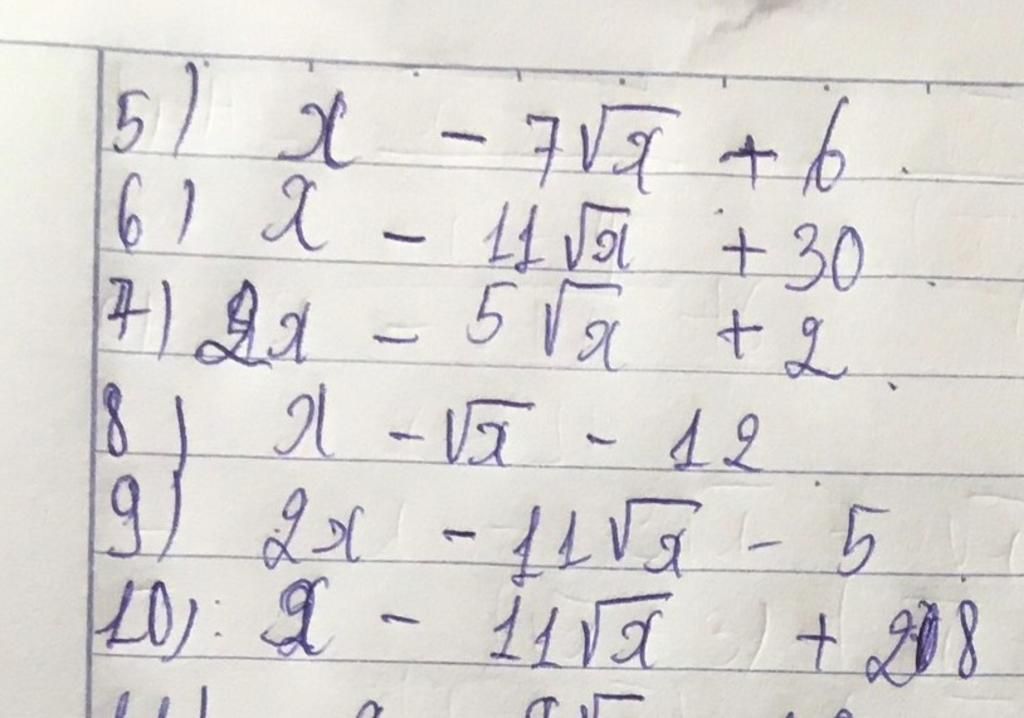 5) x - 7√x + 6
6) x - 11√x + 30
7) 2x - 5√x + 2
8) x - √x - 12
9) 2x - 11√x - 5
10) x - 11√x + 28